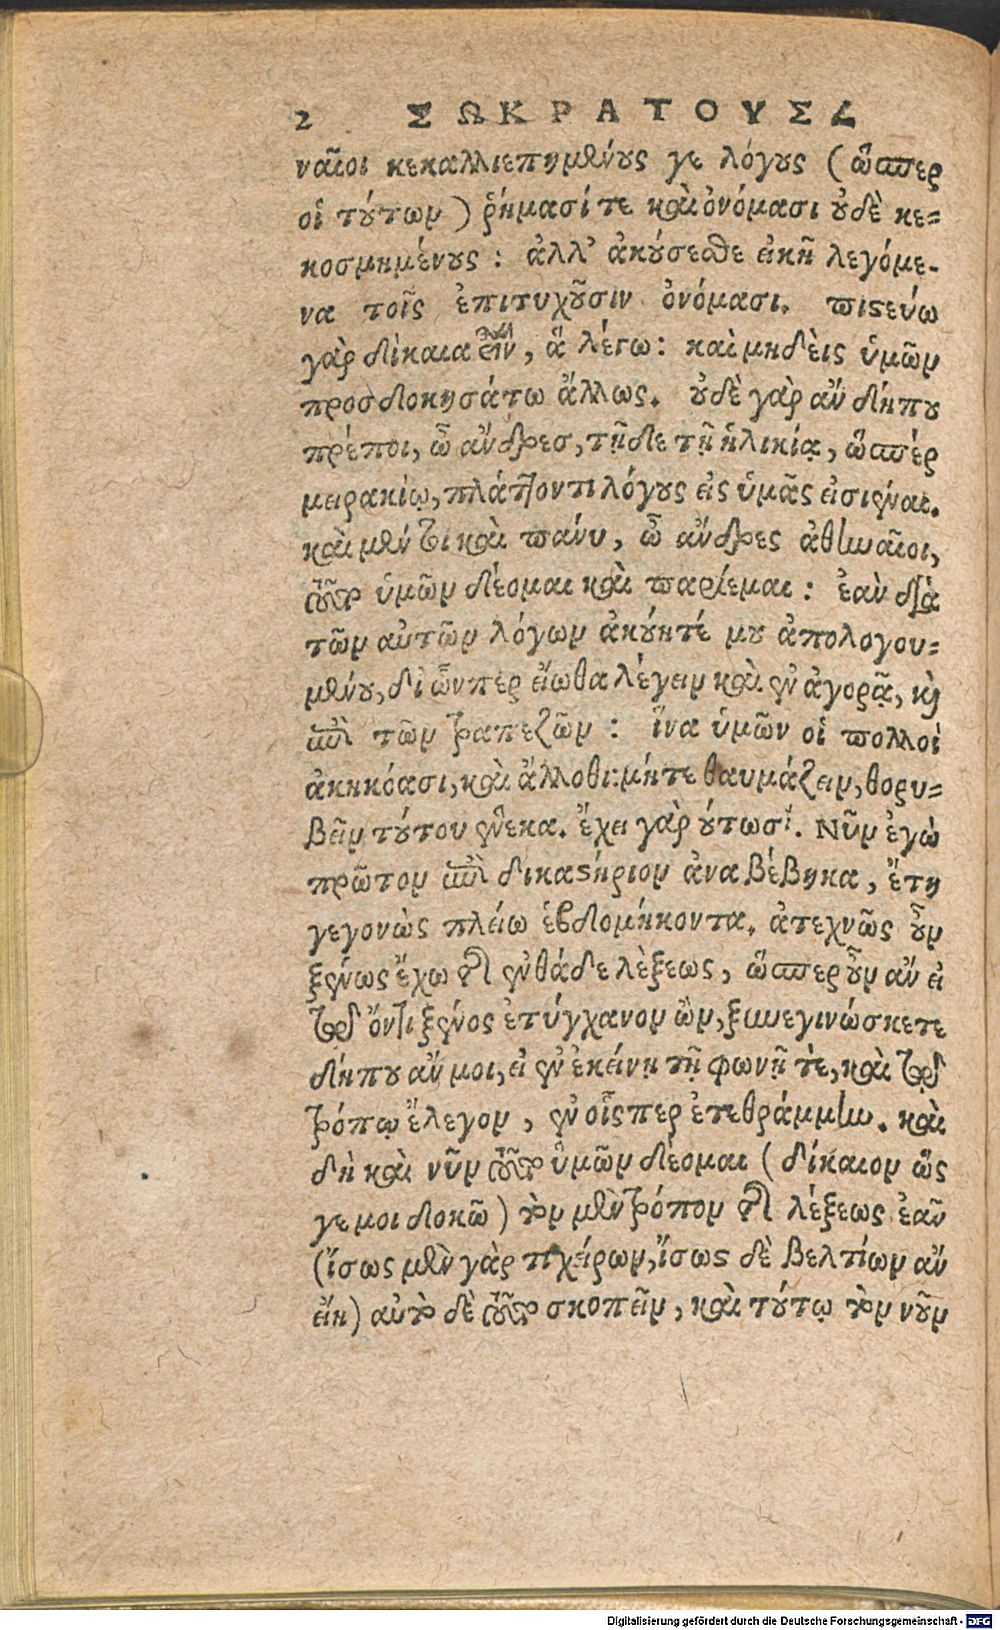 2 ΣΩΚΡΑΤΟΥΣ
ναῖοι κεκαλλιεπημένους γε λόγους (ὥσπερ
οἱ τούτων) ῥήμασί τε καὶ ὀνόμασι οὐδὲ κε=
κοσμημένους: ἀλλ’ ἀκούσεσθε εἰκῆ λεγόμε-
να τοῖς ἐπιτυχοῦσιν ὀνόμασι. πιστεύω
γὰρ δίκαια εἶναι, ἃ λέγω: καὶ μηδεὶς ὑμῶν
προσδοκησάτω ἄλλως. οὐδὲ γὰρ ἂν δήπου
πρέποι, ὦ ἄνδρες, τῇδε τῇ ἡλικίᾳ, ὥσπέρ
μειρακίῳ, πλάττοντι λόγους εἰς ὑμᾶς εἰσιέναι.
καὶ μέντοι καὶ πάνυ, ὦ ἄνδρες ἀθηναῖοι,
τοῦτο ὑμῶν δέομαι καὶ παρίεμαι: ἐὰν διὰ
τῶν αὐτῶν λόγων ἀκούητέ μου ἀπολογου=
μένου, δι ὧνπερ εἴωθα λέγειν καὶ ἐν ἀγορᾷ, καὶ
ἐπὶ τῶν τραπεζῶν: ἵνα ὑμῶν οἱ πολλοὶ
ἀκηκόασι, καὶ ἄλλοθι: μήτε θαυμάζειν, θορυ=
βεῖν τούτου ἕνεκα. ἔχει γὰρ οὑτωσί. Νῦν ἐγὼ
πρῶτον ἐπὶ δικαστήριον ἀναβέβηκα, ἔτη
γεγονὼς πλείω ἑβδομήκοντα. ἀτεχνῶς οὖν
ξένως ἔχω τῆς ἐνθάδε λέξεως, ὥσπερ οὖν ἂν εἰ
τῷ ὄντι ξένος ἐτύγχανον ὢν, ξυνεγινώσκετε
δήπου ἄν μοι, εἰ ἐν ἐκείνῃ τῇ φωνῇ τὲ, καὶ τῷ
τρόπῳ ἔλεγον, ἐν οἷσπερ ἐτεθράμμην. καὶ
δὴ καὶ νῦν τοῦτο ὑμῶν δέομαι (δίκαιον ὥς
γε μοι δοκῶ) τὸν μὲν τρόπον τῆς λέξεως ἐᾶν
(ἴσως μὲν γὰρ τι χείρων, ἴσως δὲ βελτίων ἂν
εἴη) αὐτὸ δὲ τοῦτο σκοπεῖν, καὶ τούτῳ τὸν νοῦν
Digitalisierung gefördert durch die Deutsche Forschungsgemeinschaft - DFG